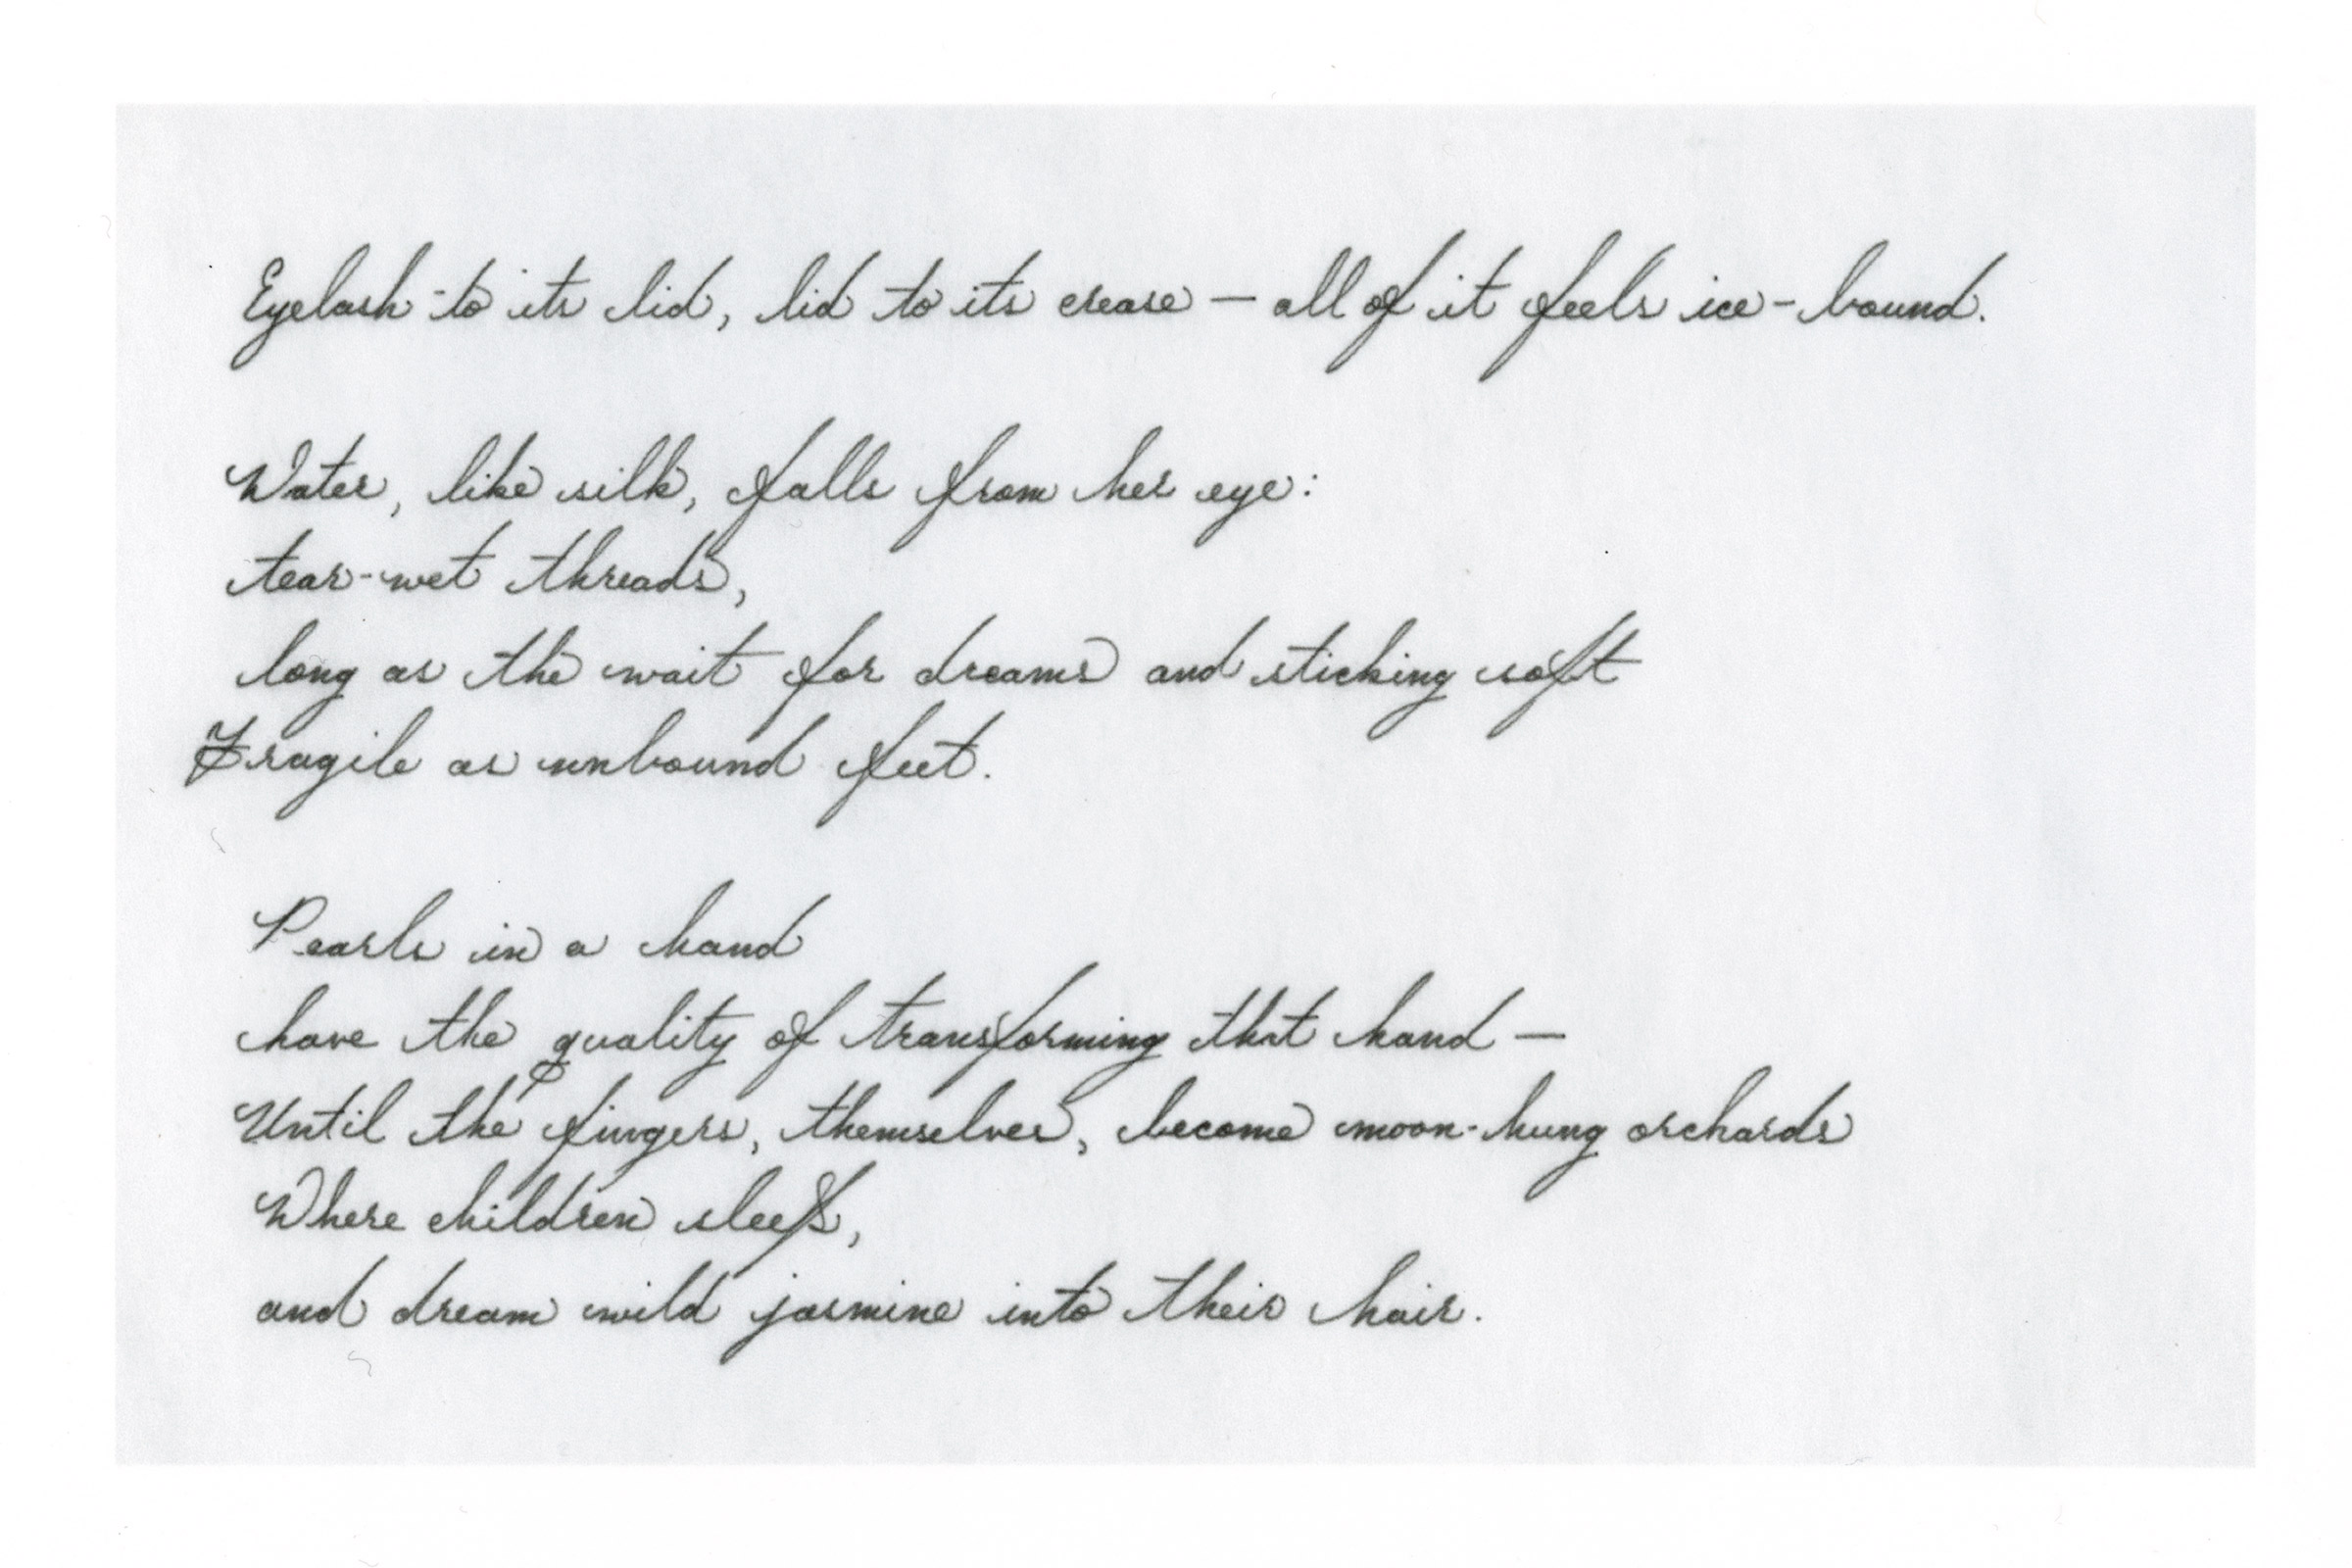 Eyelash to its lid, lid to its crease — all of it feels ice-bound.
Water, like silk, falls from her eye:
tear-wet threads,
long as the wait for dreams and sticking soft
Fragile as unbound feet.
Pearls in a hand
have the quality of transforming that hand —
Until the fingers, themselves, become moon-hung orchards
Where children sleep,
and dream wild jasmine into their hair.